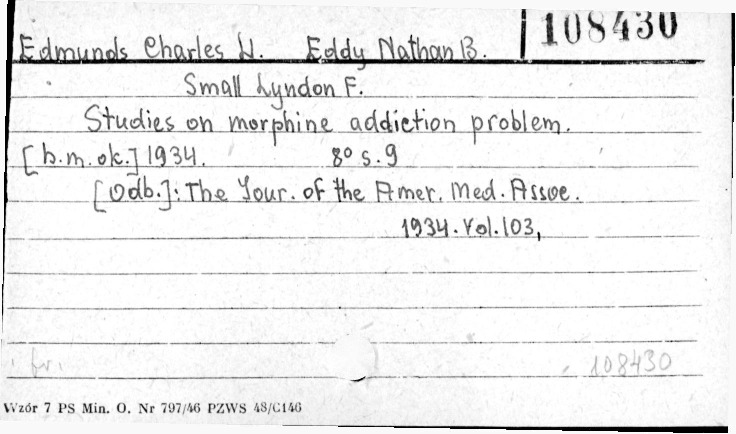 108430
Edmunds Charles W. Eddy Nathan B.
Small Lyndon F.
Studies on morphine addiction problem.
[b.m.ok.] 1934. 8° s. 9
[Odb.]: The Jour. of the Amer. Med. Assoc.
1934. Vol. 103,
fr. 108430
Wzór 7 PS Min. O. Nr 797/46 PZWS 48/C146